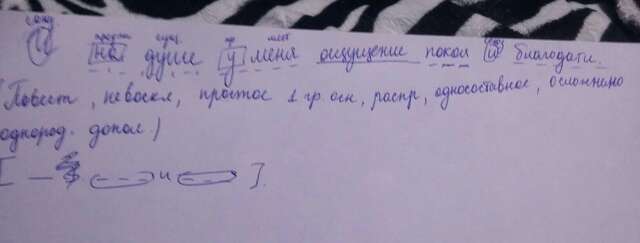 союз предл. сущ. пр мест союз
И на душе у меня ощущение покоя и благодати.
(Повест, невоскл, простое 1 гр. осн, распр, односоставное, осложнено
однород. допол.)
[ — и ].